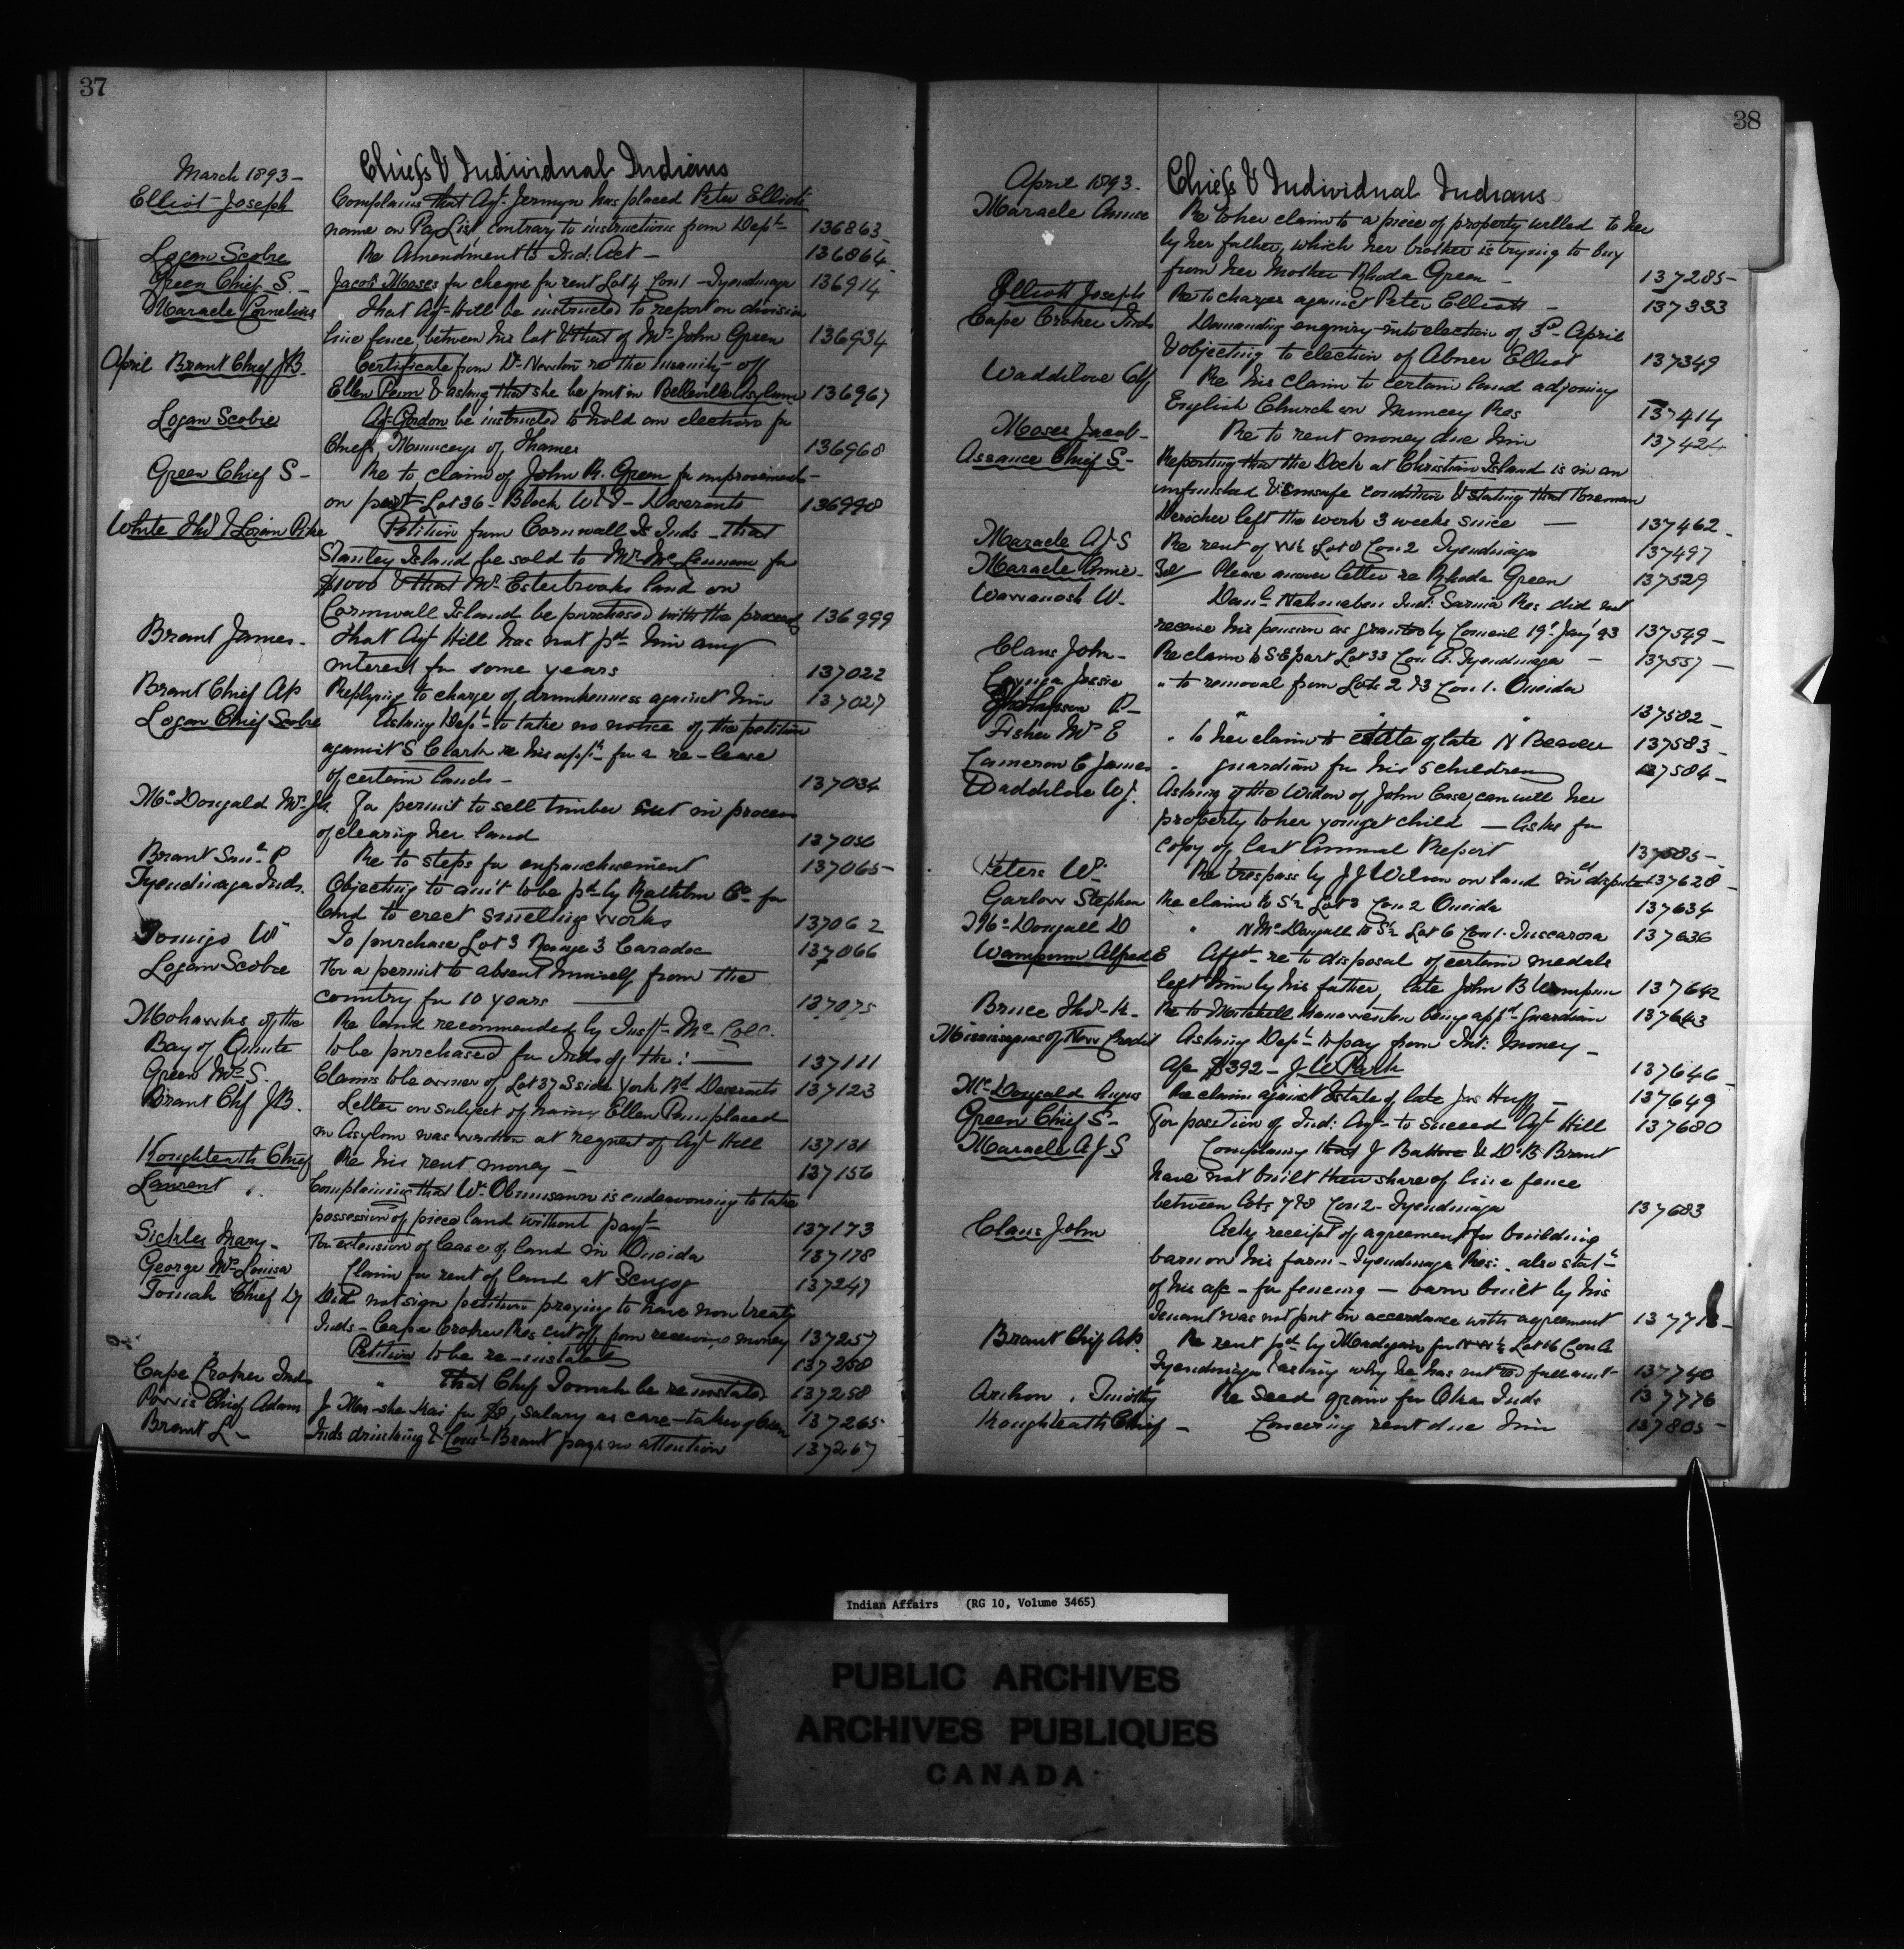 37
Chiefs & Individual Indians
March 1893 -
Elliot Joseph Complains that Agt Jermyn has placed Peter Elliots
name on Pay List contrary to instructions from Dept 136863
Logan Scobie Re Amendment to Ind. Act - 136864
Green Chief S. - Jacob Moses for cheque for rent Lot 4 Con 1 - Tyendinaga 136914
Maracle Cornelius That Agt Hill be instructed to report on division
line fence, between his lot & that of Mrs John Green 136934
April Brant Chief J.B. Certificate from Dr Newton re the Insanity of
Ellen Penn & asking that she be put in Belleville Asylum 136967
Logan Scobie Agt Gordon be instructed to hold an election for
Chiefs, Munceys of Thames 136968
Green Chief S - Re to claim of John R. Green for improvements -
on part Lot 36 - Block - Deseronto 136990
White Thos & Loran Pike Petition from Cornwall Is Inds - that
Stanley Island be sold to Mr McLennan for
$1000 & that Mr Esterbrooks land on
Cornwall Island be purchased with the proceeds 136999
Brant James - That Agt Hill has not pd him any
interest for some years 137022
Brant Chief AB Replying to charge of drunkenness against him 137027
Logan Chief Scobie Asking Dept to take no notice of the petition
against S Clark re his appn for a re-lease
of certain lands - 137034
McDougald Mrs Jn. For permit to sell timber cut in process
of clearing her land 137050
Brant Saml P Re to steps for enfranchisement 137065 -
Tyendinaga Inds. Objecting to amt to be pd by Rathbun Co for
land to erect smelting works 137062
Tomigo W To purchase Lot 3 Range 3 Caradoc 137066
Logan Scobie For a permit to absent himself from the
country for 10 years 137075
Mohawks of the Re land recommended by Inspt Mc
Bay of Quinte to be purchased for Inds of the: 137111
Green Mrs S. Claims to be owner of Lot 37 S side York Rd Deseronto 137123
Brant Chf J.B. Letter on subject of having Ellen Penn placed
in Asylum was written at request of Agt Hill 137131
Koughteath Chief Re his rent money - 137156
Laurent Complaining that Wm Obumsawn is endeavouring to take
possession of piece land without payt 137173
Sickles Mary - For extension of lease of land in Oneida 137178
George Mrs Louisa Claim for rent of land at Scugog 137247
Tomah Chief Did not sign petition praying to have non treaty
Inds - Cape Croker Res cut off from receiving money 137257
Petition to be re-instated 137258
Cape Croker Inds " That Chief Tomah be reinstated 137258
Chief Adam J for $8, salary as care-taker 137265
Brant L - Inds drinking & Const Brant pays no attention 137267
38
Chiefs & Individual Indians
April 1893.
Maracle Annie Re to her claim to a piece of property willed to her
by her father, which her brother is trying to buy
from her Mother Rhoda Green - 137285 -
Elliott Joseph Re to charges against Peter Elliott - 137333
Cape Croker Inds Demanding enquiry into election of 3rd April
& objecting to election of Abner Elliot 137349
Waddilove Re his claim to certain land adjoining
English Church on Muncey Res 137414
Moses Jacob - Re to rent money due him 137424
Assance Chief S - Reporting that the Dock at Christian Island is in an
unfinished & unsafe condition & stating that Foreman
Dericher left the work 3 weeks since - 137462 -
Maracle A J S Re rent of W½ Lot 8 Con 2 Tyendinaga 137497
Maracle Annie - Please answer letter re Rhoda Green 137529
Wawanosh W. Danl Nahmabin Ind: Sarnia Res did not
receive his pension as granted by Council 19th Jany 93 137549 -
Claus John - Re claim to S.E part Lot 33 Con A. Tyendinaga - 137557 -
Cayuga Jessie " to removal from Lots 2 & 3 Con 1. Oneida
Thompson P - " " " 137582 -
Fisher Mrs E " to her claim to estate of late N Beaver 137583 -
Cameron C James " guardian for his 5 children 137584 -
Waddilove W J. Asking if the Widow of John Case, can will her
property to her youngest child - Asks for
copy of last Annual Report 137585 -
Peters Wm Re trespass by J J Wilson on land in dispute 137628 -
Garlow Stephen Re claim to S½ Lot 8 Con 2 Oneida 137634
McDougall D " N McDougall to S½ Lot 6 Con 1. Tuscarora 137636
Wampum Alfred E Affdt re to disposal of certain medals
left him by his father, late John B Wampum 137642
Bruce Thos K - Re to Mitchell being appd Guardian 137643
Mississaguas of New Credit Asking Dept to pay from Int: Money -
a/c $392 - J W Park 137646
McDougald Angus Re claim against Estate of late Jas Huff - 137649
Green Chief S - For position of Ind: Agt - to succeed Agt Hill 137680
Maracle A J S Complaining that J Battice & Dr B Brant
have not built their share of line fence
between Lots 7 & 8 Con 2 - Tyendinaga 137683
Claus John Ackg receipt of agreement for building
barn on his farm - Tyendinaga Res: also statt
of his a/c - for fencing - barn built by his
Tenant was not put in accordance with agreement 137718 -
Brant Chief AB. Re rent pd by Madigan for N W¼ Lot 16 Con A
Tyendinaga & asking why he has not recd full amt - 137740
Timothy Re Seed grain for Oka Inds 137776
Koughteath Chief - Concerning rent due him 137805 -
Indian Affairs (RG 10, Volume 3465)
PUBLIC ARCHIVES
ARCHIVES PUBLIQUES
CANADA